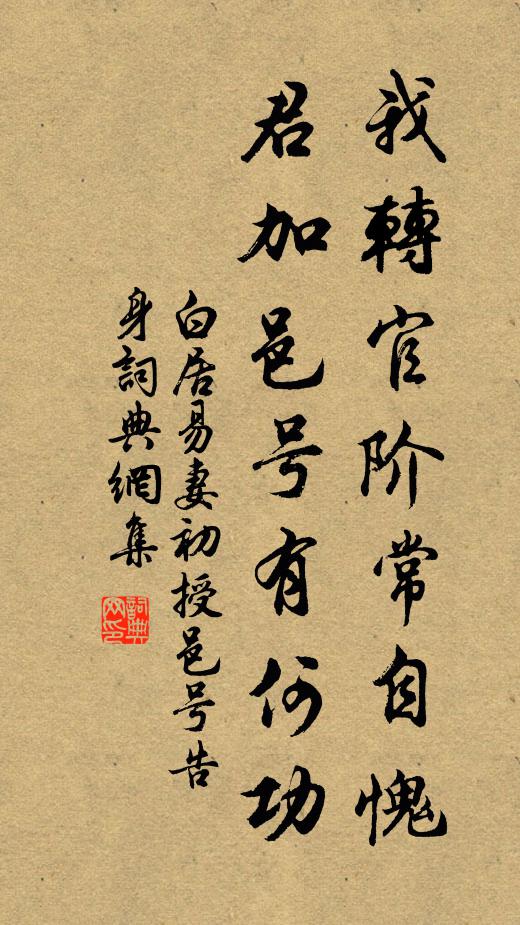 我轉官阶常自愧
君加邑号有何功
白居易妻初授邑号告
身詞典網集
詞典网印